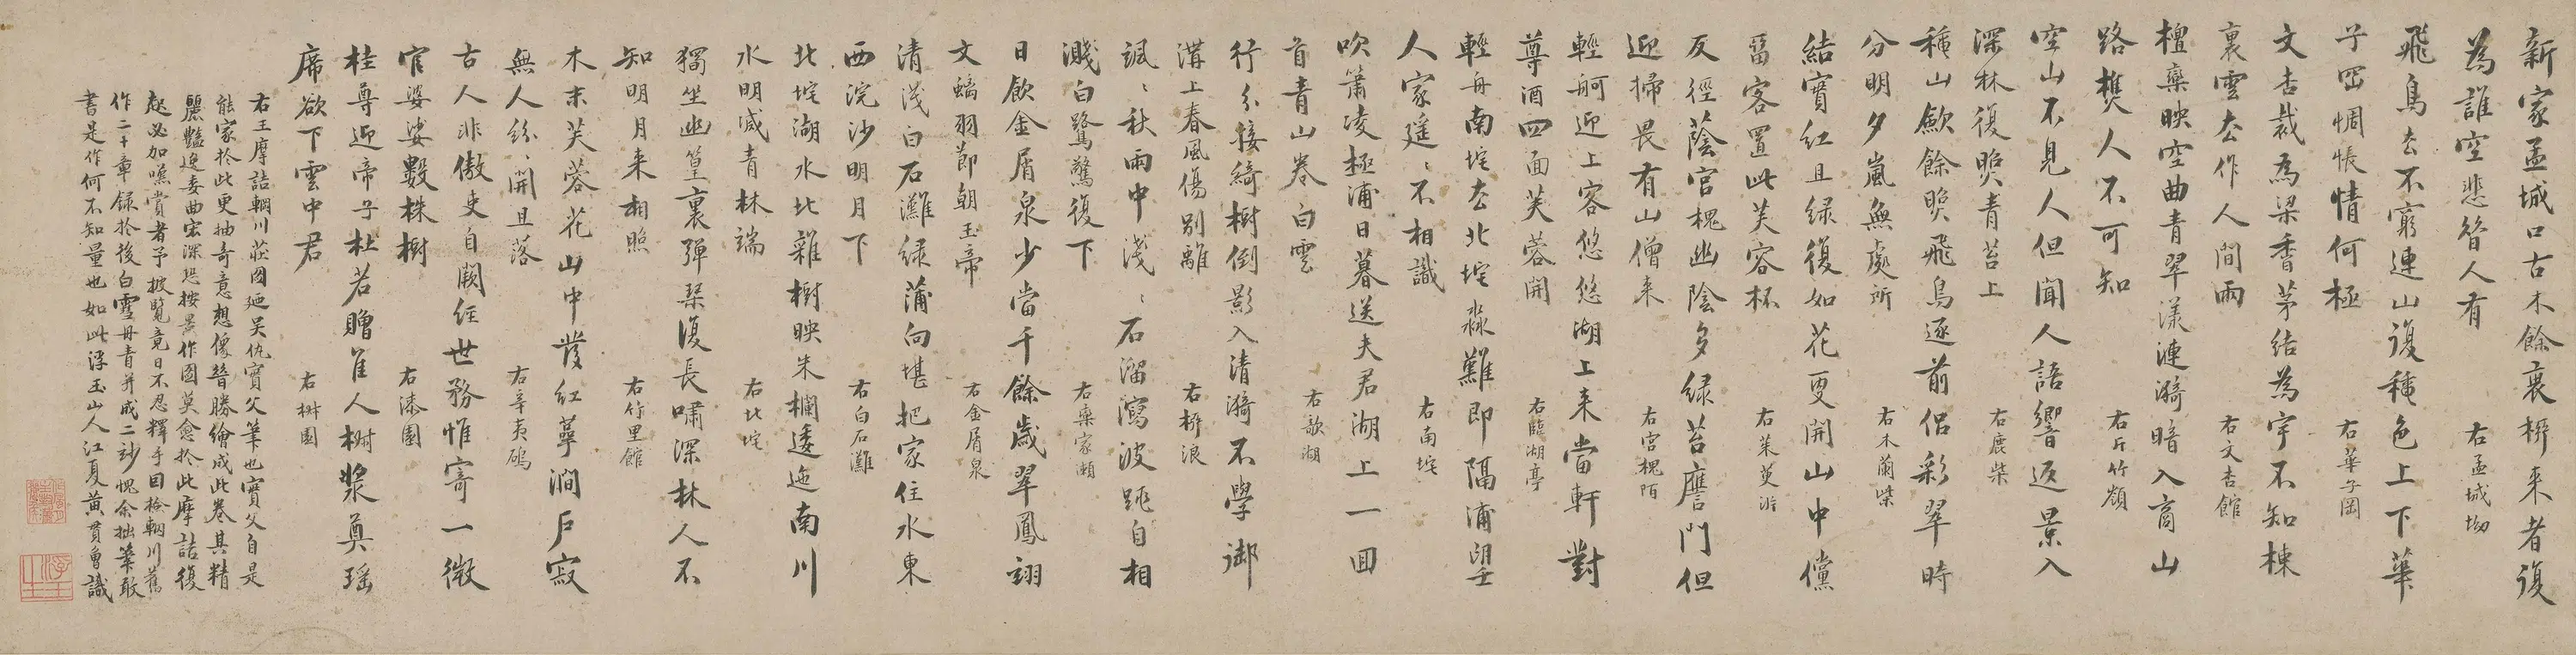 新家孟城口古木餘衰柳来者復
為誰空悲昝人有
右孟城坳
飛鳥去不窮連山復種色上下華
子岡惆悵情何極
右華子岡
文杏裁為梁香茅結為宇不知棟
裏雲去作人間雨
右文杏館
檀欒映空曲青翠漾漣漪暗入商山
路樵人不可知
右斤竹嶺
空山不見人但聞人語響返景入
深林復照青苔上
右鹿柴
種山歛餘照飛鳥逐前侣彩翠時
分明夕嵐無處所
右木蘭柴
結實紅且绿復如花更開山中儻
留客置此芙容杯
右茱萸沜
反徑蔭宫槐幽陰多緑苔應門但
迎掃畏有山僧来
右宫槐陌
輕舸迎上客悠悠湖上来當軒對
尊酒四面芙蓉開
右臨湖亭
輕舟南垞去北垞淼難即隔浦望
人家遥〻不相識
右南垞
吹簫凌極浦日暮送夫君湖上一囬
首青山卷白雲
右欹湖
行分接綺樹倒影入清漪不學御
溝上春風傷别離
右柳浪
颯〻秋雨中淺〻石溜瀉波跳自相
濺白鷺驚復下
右欒家瀬
日飲金屑泉少當千餘歳翠鳳翊
文螭羽節朝玉帝
右金屑泉
清淺白石灘绿蒲向堪把家住水東
西浣沙明月下
右白石灘
北垞湖水北雜樹映朱欄逶迤南川
水明滅青林端
右北垞
獨坐幽篁裏彈琹復長嘯深林人不
知明月来相照
右竹里館
木末芙蓉花山中發红萼澗戶寂
無人紛〻開且落
右辛夷塢
古人非傲吏自闕经世務惟寄一微
官婆娑數株樹
右漆園
桂尊迎帝子杜若贈佳人椒漿奠瑶
席欲下雲中君
右椒園
右王摩詰輞川莊圖廼吴仇實父筆也實父自是
能家於此更抽奇意想像昝勝繪成此卷其精
麗豔逸委曲宏深想按景作圖莫愈於此摩詰復
起必加嘆賞者予披覧竟日不忍釋手因检輞川舊
作二十章録於後白雪丹青并成二玅愧余拙筆敢
書是作何不知量也如此浮玉山人江夏黄貫曾識